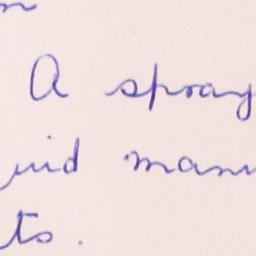 A spray
uid manu
ts.